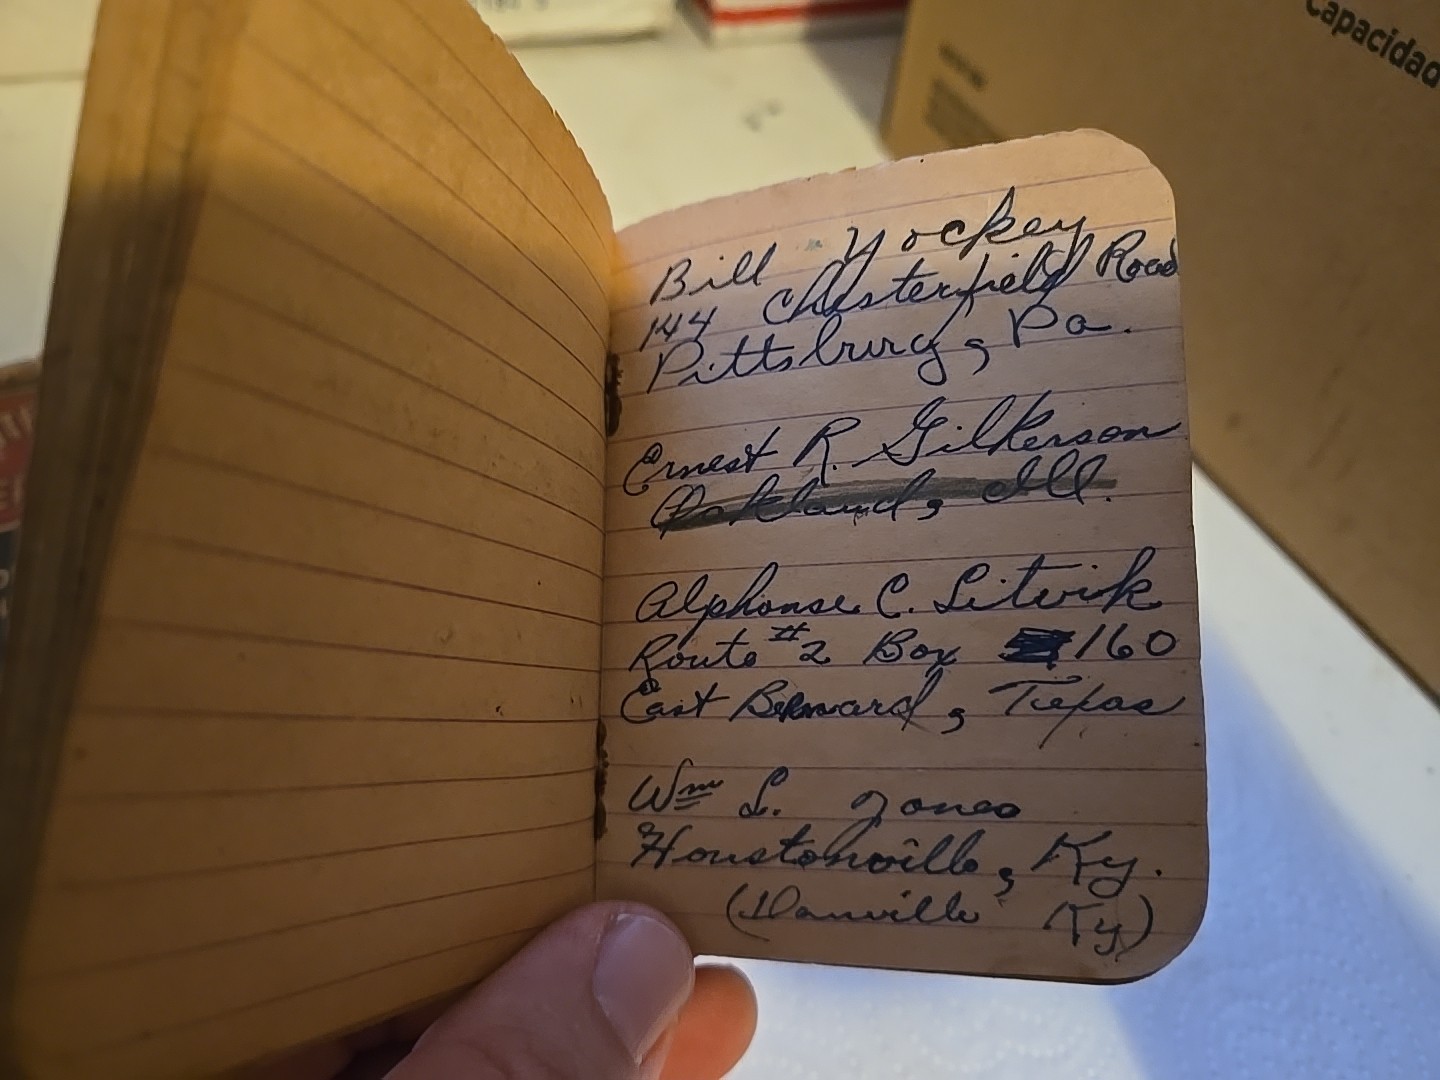 Capacidad
Bill Yockey
144 Chesterfield Road
Pittsburg, Pa.
Ernest R. Gilkerson
Oakland, Ill.
Alphonse C. Litwik
Route #2 Box 160
East Bernard, Texas
Wm L. Jones
Houstonville, Ky.
(Danville Ky)